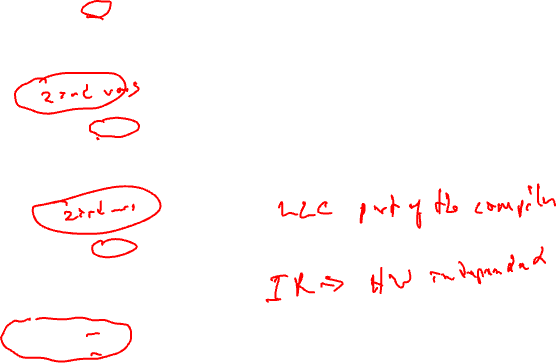 2 ind vars
2 ind vars
part of the compiler
IR => HW independent